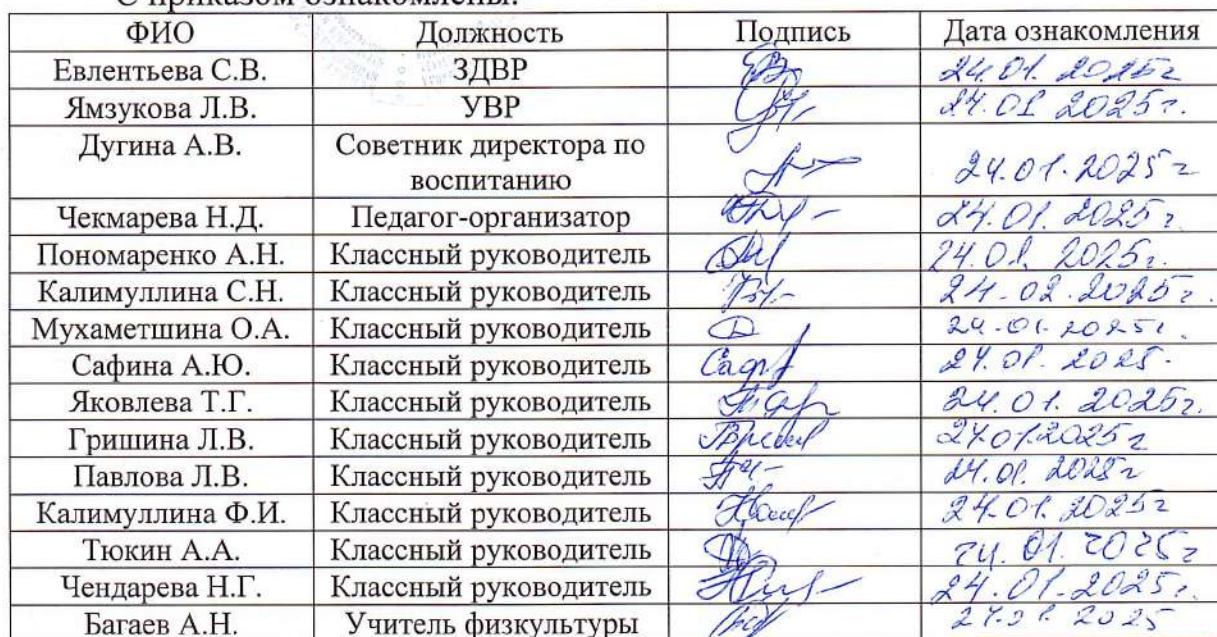 С приказом ознакомлены:
ФИО Должность Подпись Дата ознакомления
Евлентьева С.В. ЗДВР 24.01.2025г
Ямзукова Л.В. УВР 24.01 2025г.
Дугина А.В. Советник директора по
воспитанию 24.01.2025г
Чекмарева Н.Д. Педагог-организатор 24.01.2025г.
Пономаренко А.Н. Классный руководитель 24.01. 2025г.
Калимуллина С.Н. Классный руководитель 24.02.2025г.
Мухаметшина О.А. Классный руководитель 24.01.2025г.
Сафина А.Ю. Классный руководитель 24.01.2025.
Яковлева Т.Г. Классный руководитель 24.01.2025г.
Гришина Л.В. Классный руководитель 24.01.2025г
Павлова Л.В. Классный руководитель 24.01.2025г
Калимуллина Ф.И. Классный руководитель 24.01.2025г
Тюкин А.А. Классный руководитель 24.01.2025г
Чендарева Н.Г. Классный руководитель 24.01.2025г.
Багаев А.Н. Учитель физкультуры 24.01.2025